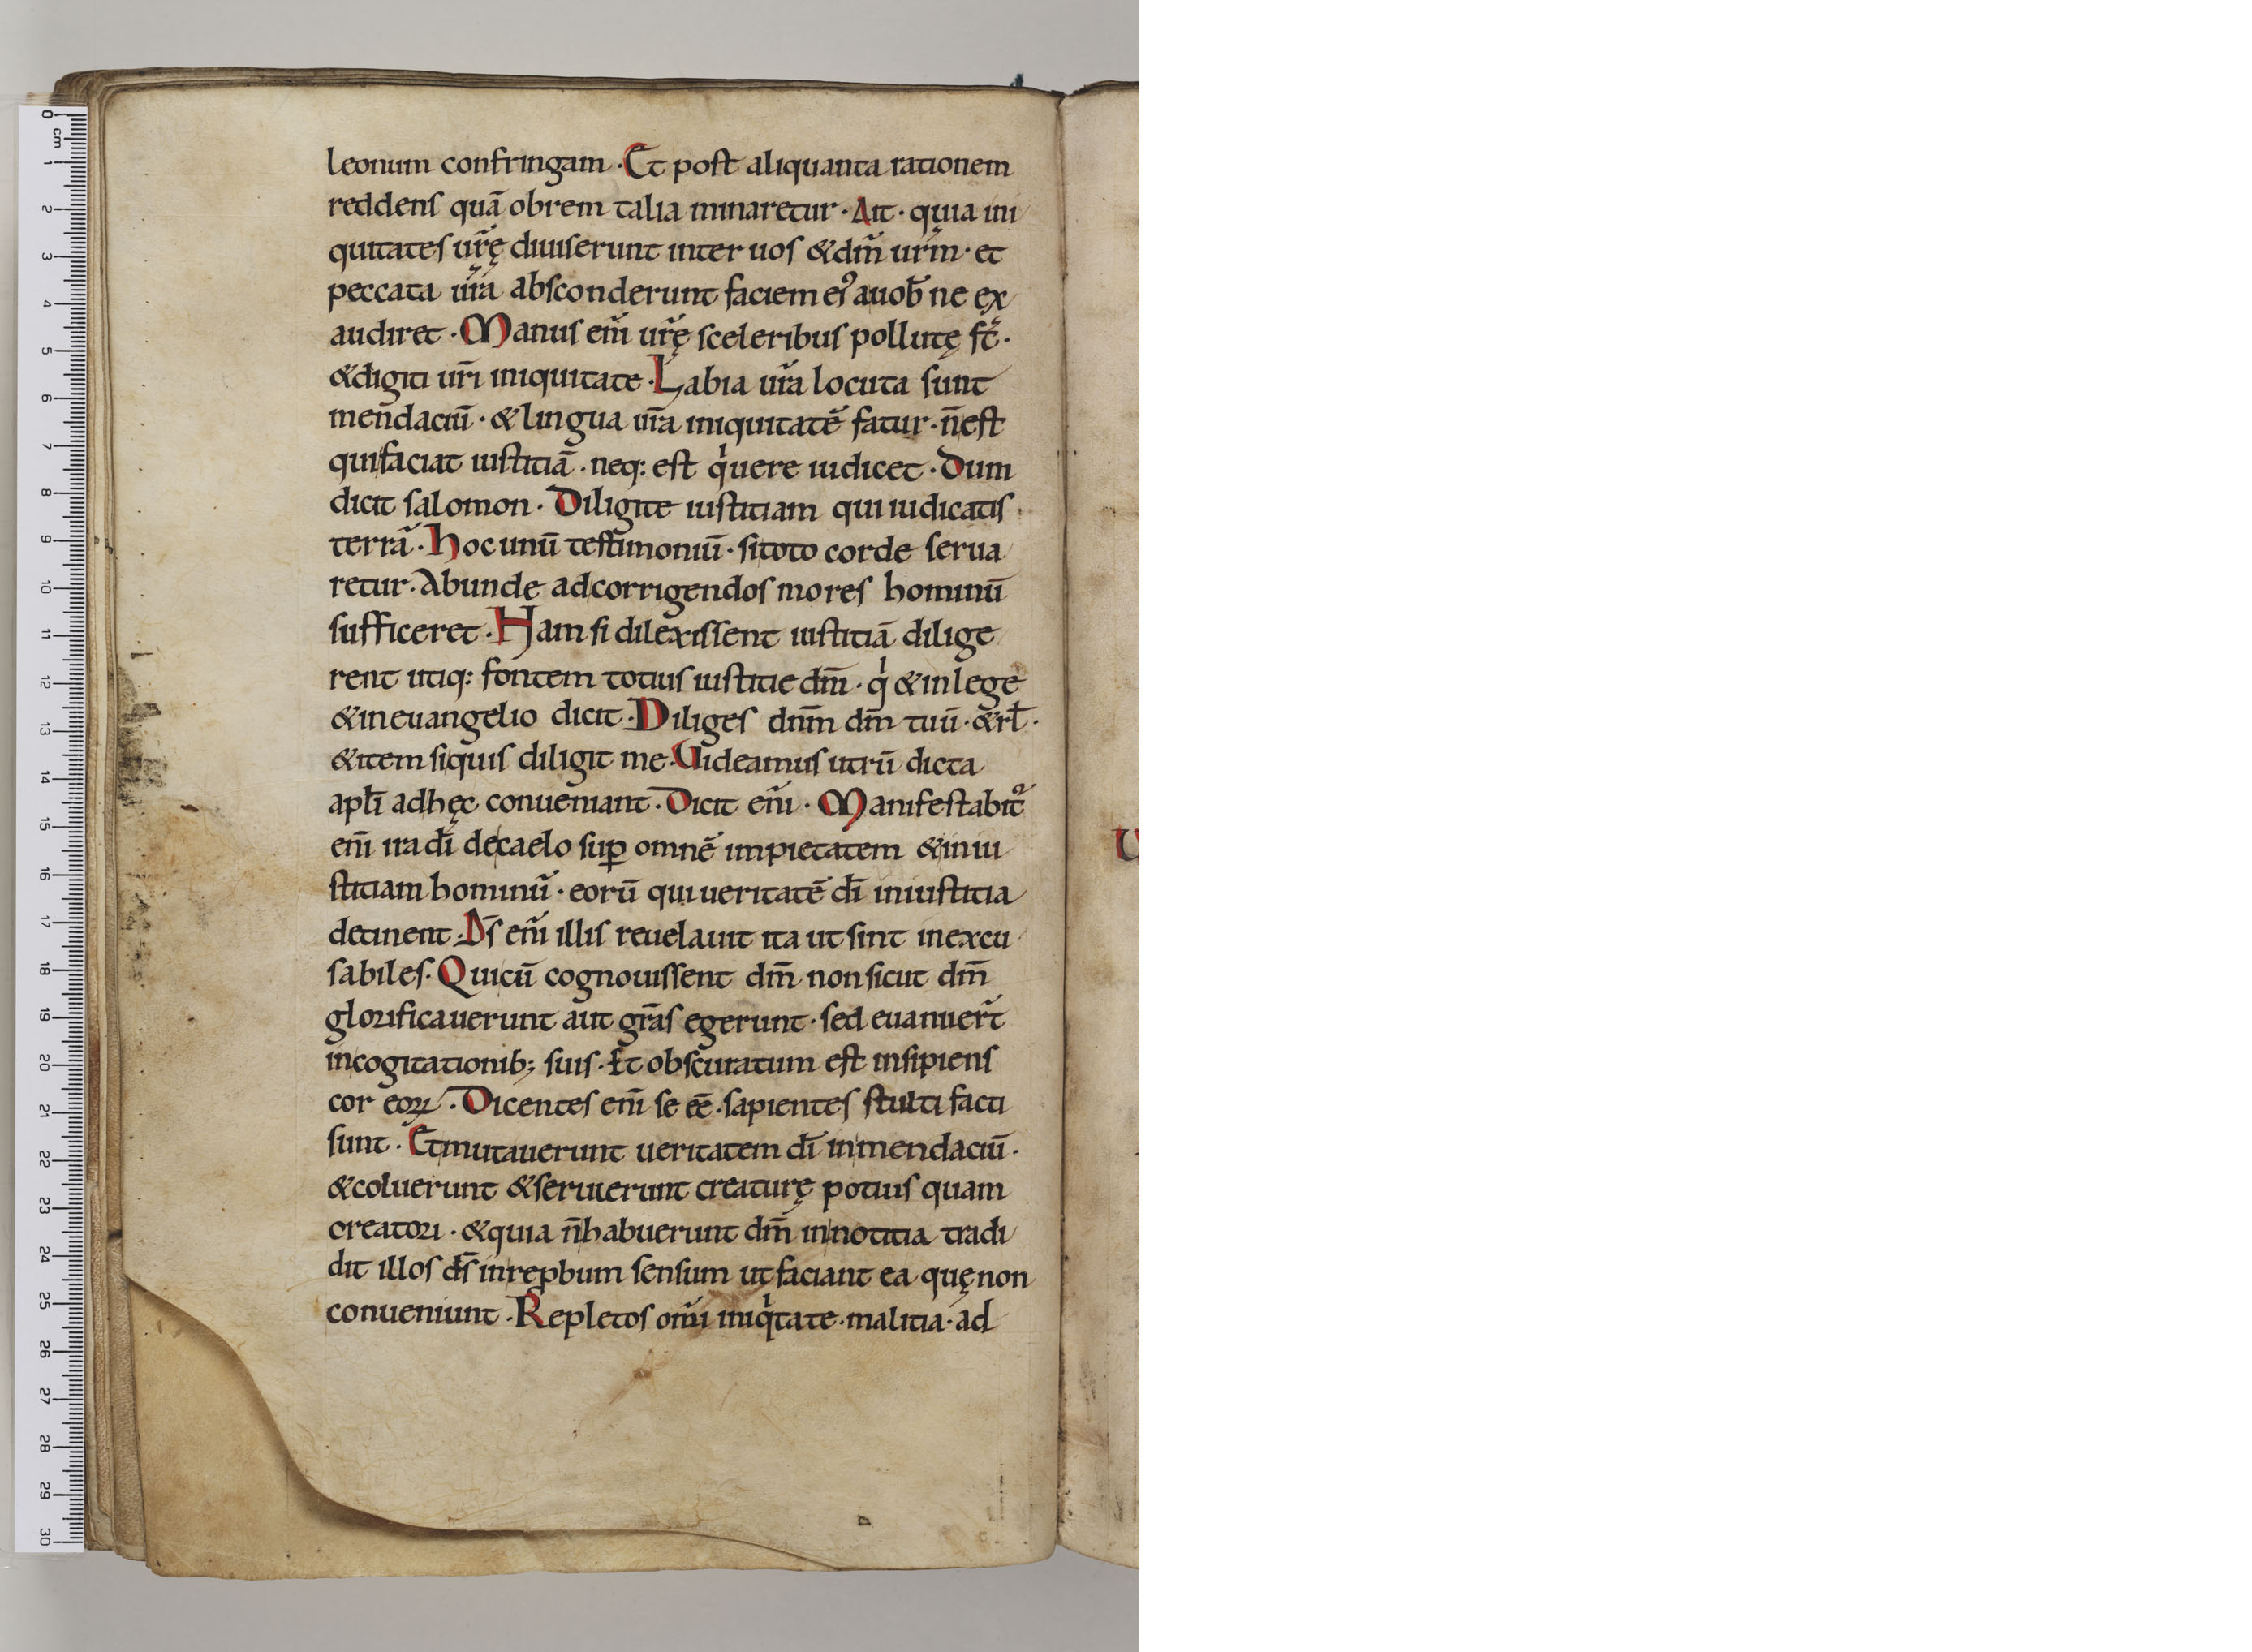 leonum confringam · Et post aliquanta rationem
reddens quā obrem talia minaretur · Ait · quia ini
quitates ur̄ę diuiserunt inter uos & dm̄ ur̄m · et
peccata ur̄a absconderunt faciem ei᾿ a uob̄ ne ex
audiret · Manus eni̅ ur̄ę sceleribus pollutę st̄ ·
& digiti ur̄i iniquitate · Labia ur̄a locuta sunt
mendaciū · & lingua ur̄a iniquitatē fatur · n̄ est
qui faciat iustitiā · neq: est qͥ uere iudicet · Dum
dicit salomon · Diligite iustitiam qui iudicatis
terrā · hoc unū testimoniū · si toto corde serua
retur · Abunde ad corrigendos mores hominū
sufficeret · Nam si dilexissent iustitiā dilige
rent utiq: fontem totius iustitie dm̄ · qͥ & in lege
& in euangelio dicit · Diliges dnm̄ dm̄ tuū · & rł ·
& item si quis diligit me · Uideamus utrū dicta
apłi ad hęc conueniant · Dicit eni̅ · Manifestabit᾿
eni̅ ira di̅ de caelo suꝑ omnē impietatem & iniu
stitiam hominū · eorū qui ueritatē di̅ iniustitia
detinent · Ds̄ eni̅ illis reuelauit ita ut sint inexcu
sabiles · Qui cū cognouissent dm̄ non sicut dm̄
glorificauerunt aut gr̄as egerunt · sed euanuer̄t
in cogitationib; suis · Et obscuratum est insipiens
cor eoꝝ · Dicentes eni̅ se eē · sapientes stulti facti
sunt · Et mutauerunt ueritatem di̅ in mendaciū ·
& coluerunt & seruierunt creaturę potius quam
creatori · & quia n̄ habuerunt dm̄ in notitia tradi
dit illos ds̄ in reꝓbum sensum ut faciant ea quę non
conueniunt · Repletos omi̅ iniqͥtate · malitia · ad